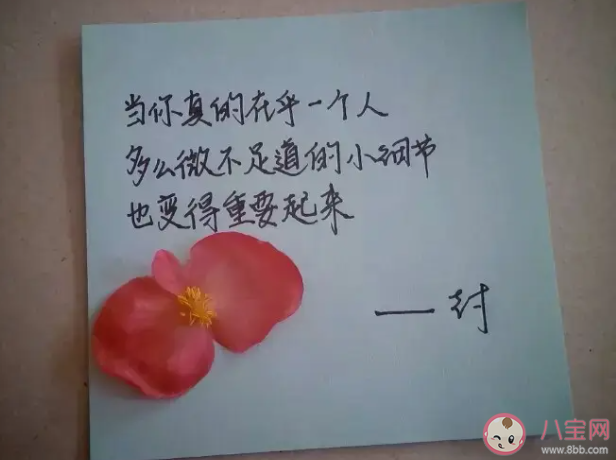 当你真的在乎一个人
多么微不足道的小细节
也变得重要起来
——封
八宝网
www.8bb.com